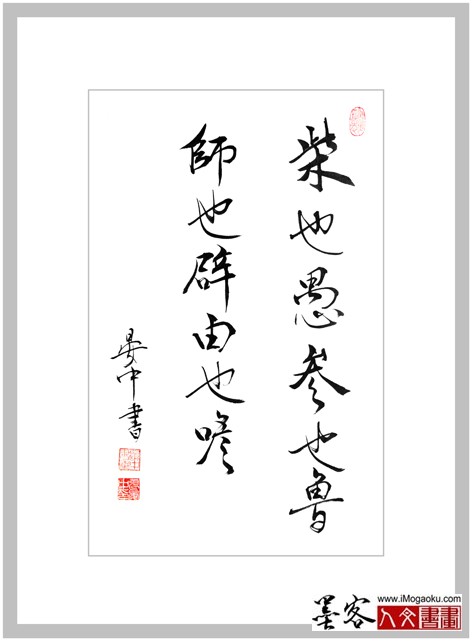 柴也愚叅也魯
師也辟由也喭
晏中書
www.iMogaoku.com
墨客人文書畫